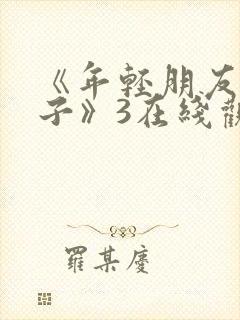 《年轻朋友
子》3在线观
羅某慶